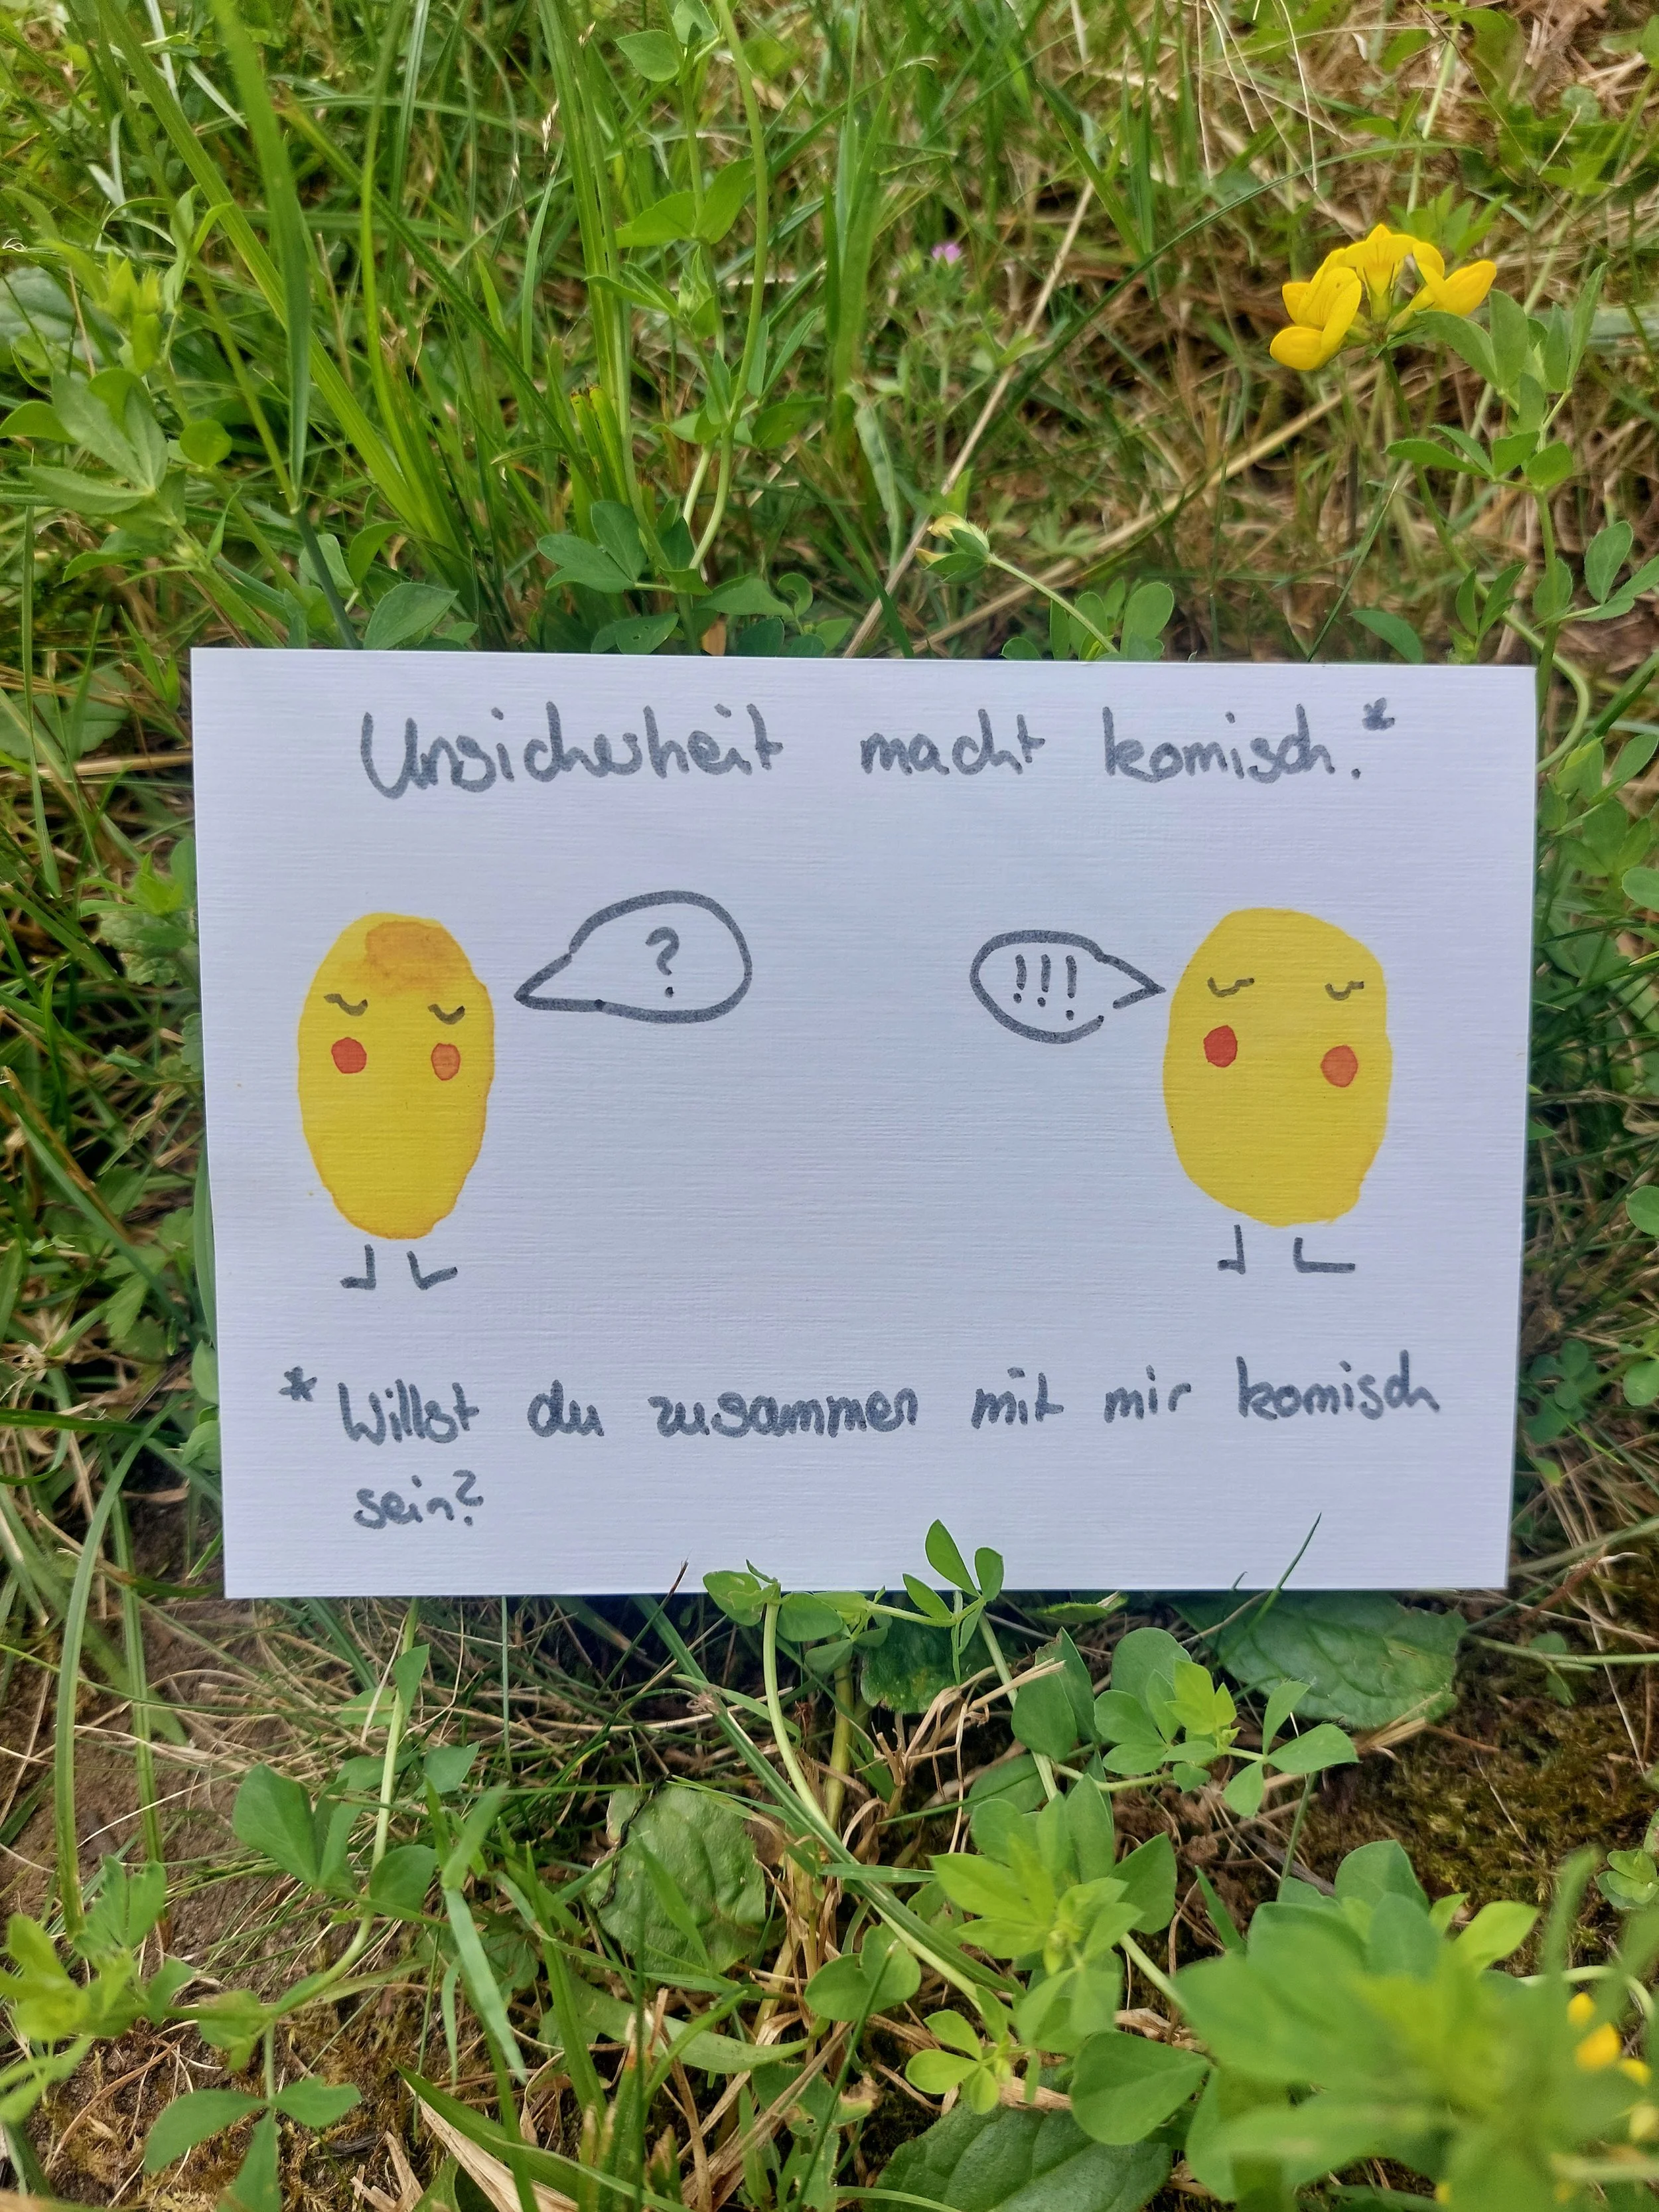 Unsicherheit macht komisch.*
?
!!!
* Willst du zusammen mit mir komisch
sein?